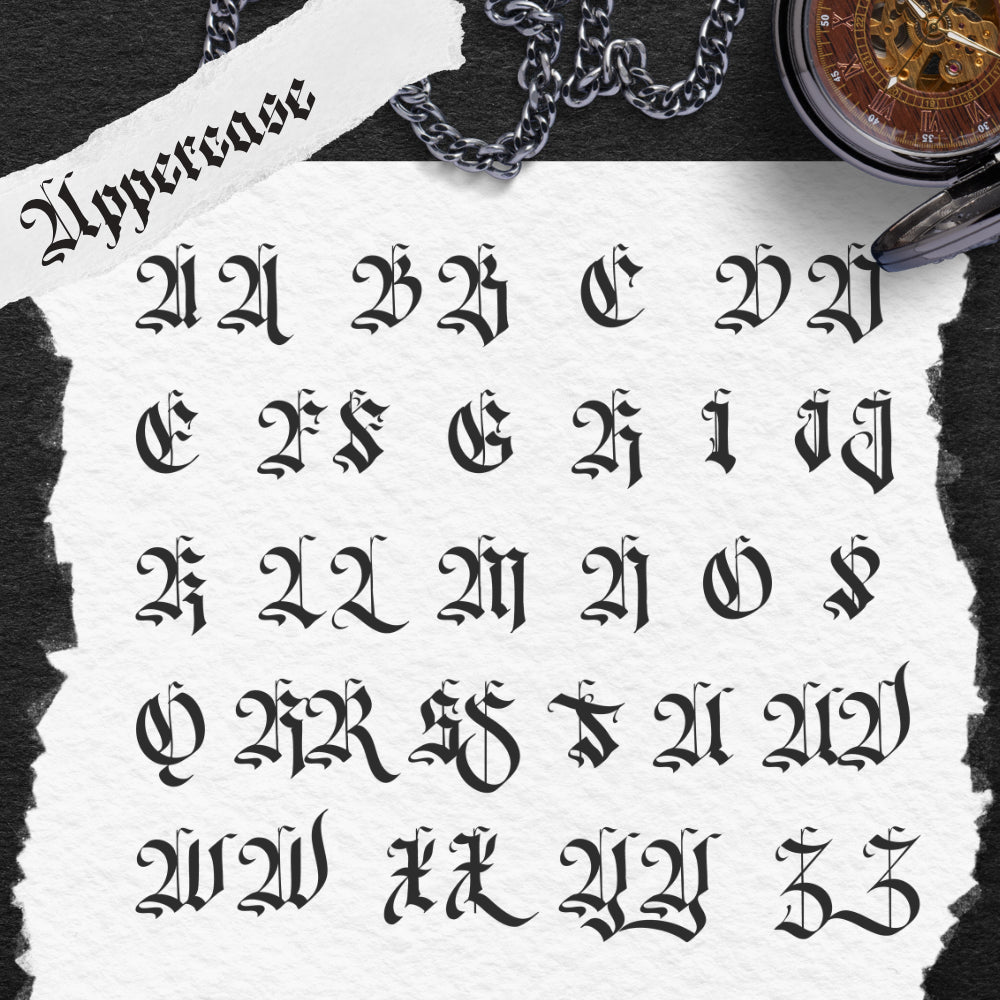 Uppercase
A A B B C D D
E F F G H I J J
K L L M N O P
Q R R S S T U V V
W W X X Y Y Z Z